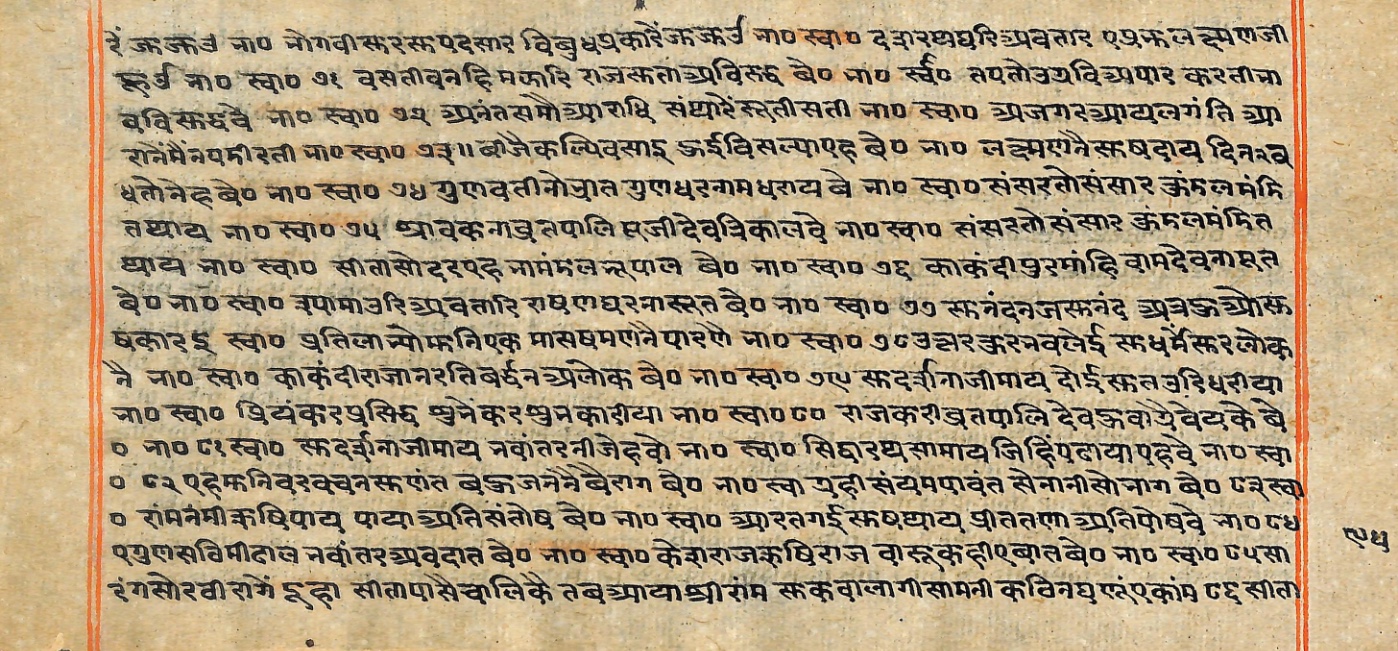 रें ऊऊउ ना० नोगवी सुर सुषदसार विबुधप्रकारें ऊऊउ ना० स्वा० दशरथघरि अवतार एप्रऊ लक्ष्मणजी
हूउ ना० स्वा० ७१ वसतीवनहिमऊारि राजसुता अविरुद्ध बै० ना० स्वा० तपतो उग्रविअपार करतीना
वविसुद्धबै ना० स्वा० ७२ अनंतसमौ आराधि संथारें सूतीसती ना० स्वा० अजगर आयलगंति आ
रानेंमैंनपमीरती ना० स्वा० ७३॥ बीजैकल्पिवसाइ ऊईविसल्याएह बै० ना० लक्ष्मणनै सुषदाय दिन२व
धतोनेह बे० ना० स्वा० ७४ गुणवतीनोभ्रात गुणधरनामधराय बे ना० स्वा० संसरतोसंसार कुंमलमंमि
तथाय ना० स्वा० ७५ श्रावकनाव्रतपालि पूजीदेवत्रिकालबे ना० स्वा० संसरतोसंसार कुंमलमंमित
थाय ना० स्वा० सीतासोदरएह नामंमलनूपाल बै० ना० स्वा० ७६ काकंदीपुरमांहि वामदेवनापूत
बे० ना० स्वा० स्पामाउरिअवतारि राषणघरनासूत बै० ना० स्वा० ७७ सुनंदनजसुनंद अत्रऊओसु
षकारइ स्वा० प्रतिलाभ्योमुनिएक मासषमणनैपारणै ना० स्वा० ७८ उत्तरकुरनवलेई सुधर्मेसुरलोक
नै ना० स्वा० काकंदीराजानरतिबर्द्धनअलोक बै० ना० स्वा० ७९ सुदर्शनाजीमाय दोईसुतबुद्धिधरीया
ना० स्वा० प्रियंकरप्रसिद्ध शुनंकरशुनकारीया ना० स्वा० ८० राजकरीव्रतपालि देवऊवाग्रैवेयकै बै
० ना० ८१ स्वा० सुदर्शनाजीमाय नवांतरनीजेहवो ना० स्वा० सिद्धारथसामाय जिहिंपढायाएहबे ना० स्वा
० ८२ एहमुनिवरवचनसुणंत बऊजननैबैराग बै० ना० स्वा ग्रहीसंयमपावंत सेनानीसोनाग बै० ८३ स्वा
० रांमनमीऋषिपाय पायाअतिसंतोष बै० ना० स्वा० आरतगईसुषथाय प्रीततणाअतिपोषबै ना० ८४
एगुणसविमीढाल नवांतरअवदात बै० ना० स्वा० केशराजऋषिराज वारूकहीएबात बै० ना० स्वा० ८५ सा
रंगसोरवीरागें दूहा सीतापासैचालिकै तबआयाश्रीरांम सुकवालागीसामनी कविनघणंएकांम ८६ सीता
९५